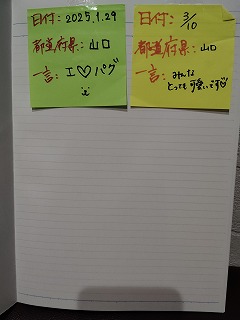 日付: 2025.1.29
都道府県: 山口
一言: I♡パグ
日付: 3/10
都道府県: 山口
一言: みんな
とっても可愛いです